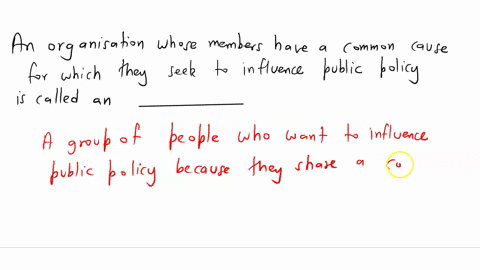 An organisation whose members have a common cause
for which they seek to influence public policy
is called an ________
A group of people who want to influence
public policy because they share a co